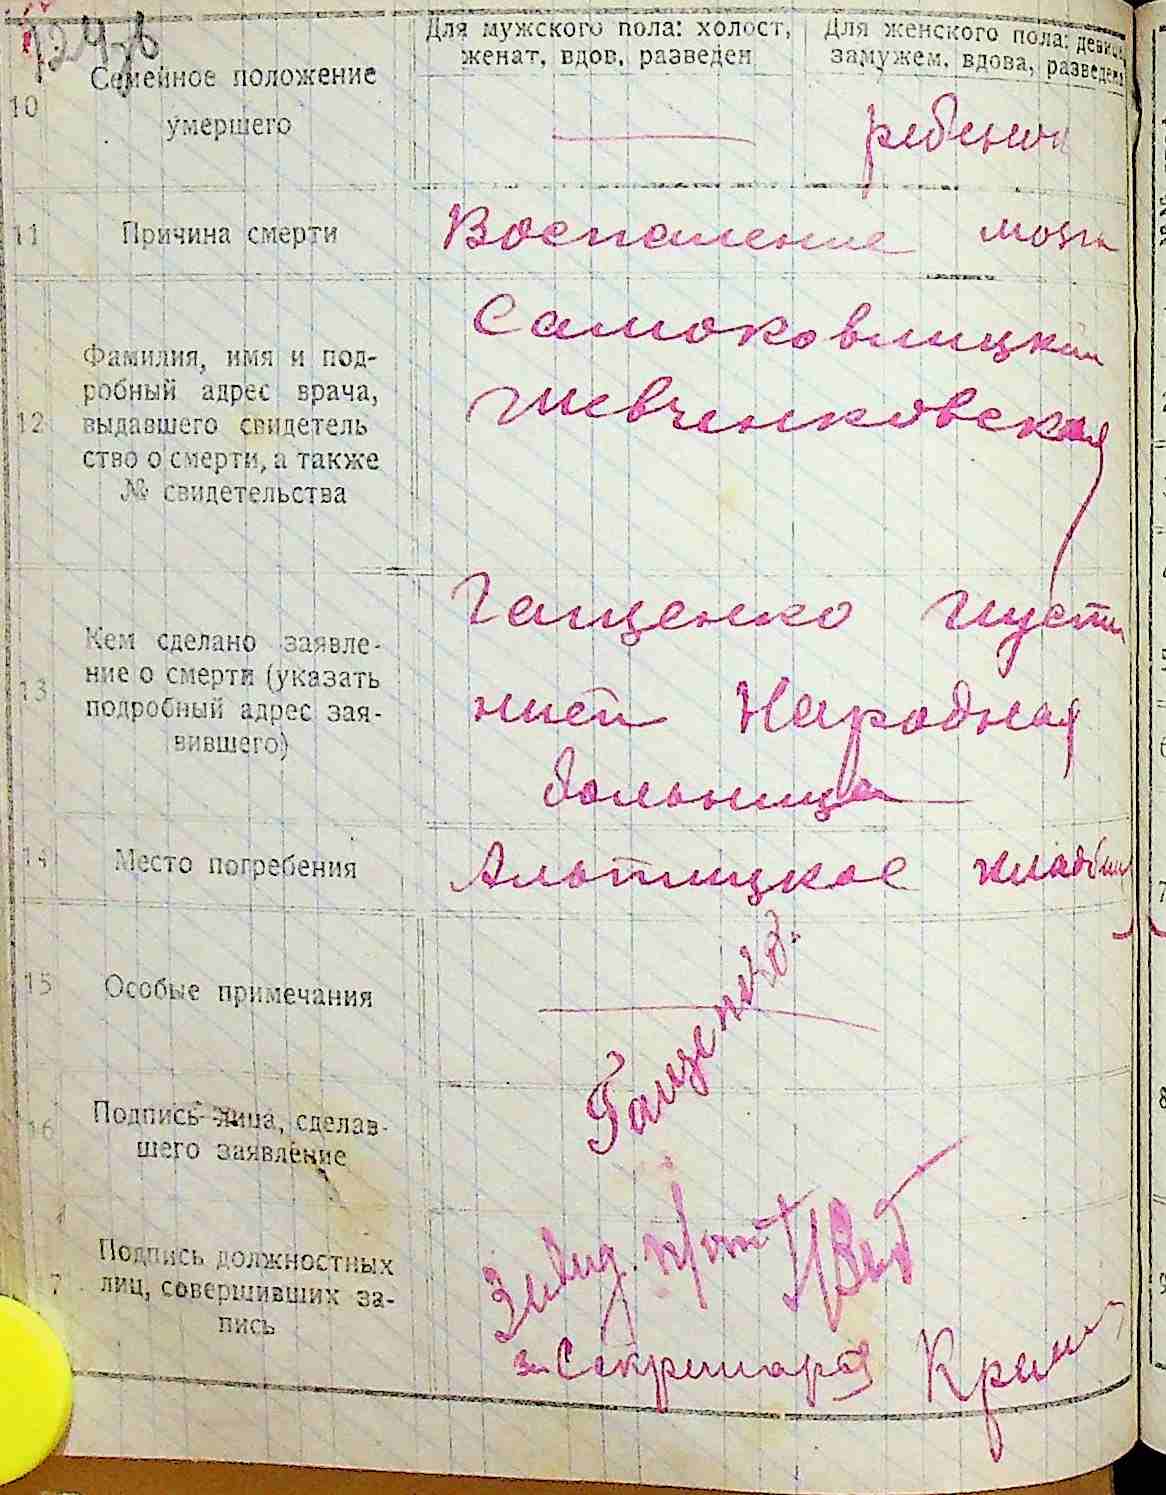 Для мужского пола: холост,
женат, вдов, разведен
Для женского пола: девица,
замужем, вдова, разведена
10
Семейное положение
умершего
ребенок
11
Причина смерти
Воспаление мозга
12
Фамилия, имя и под-
робный адрес врача,
выдавшего свидетель
ство о смерти, а также
№ свидетельства
Самоковлицкий
Шевченковская
13
Кем сделано заявле-
ние о смерти (указать
подробный адрес зая-
вившего)
Гащенко
Народная
больница
14
Место погребения
кладбище
15
Особые примечания
16
Подпись лица, сделав-
шего заявление
Гащенко
7
Подпись должностных
лиц, совершивших за-
пись
за Секретаря